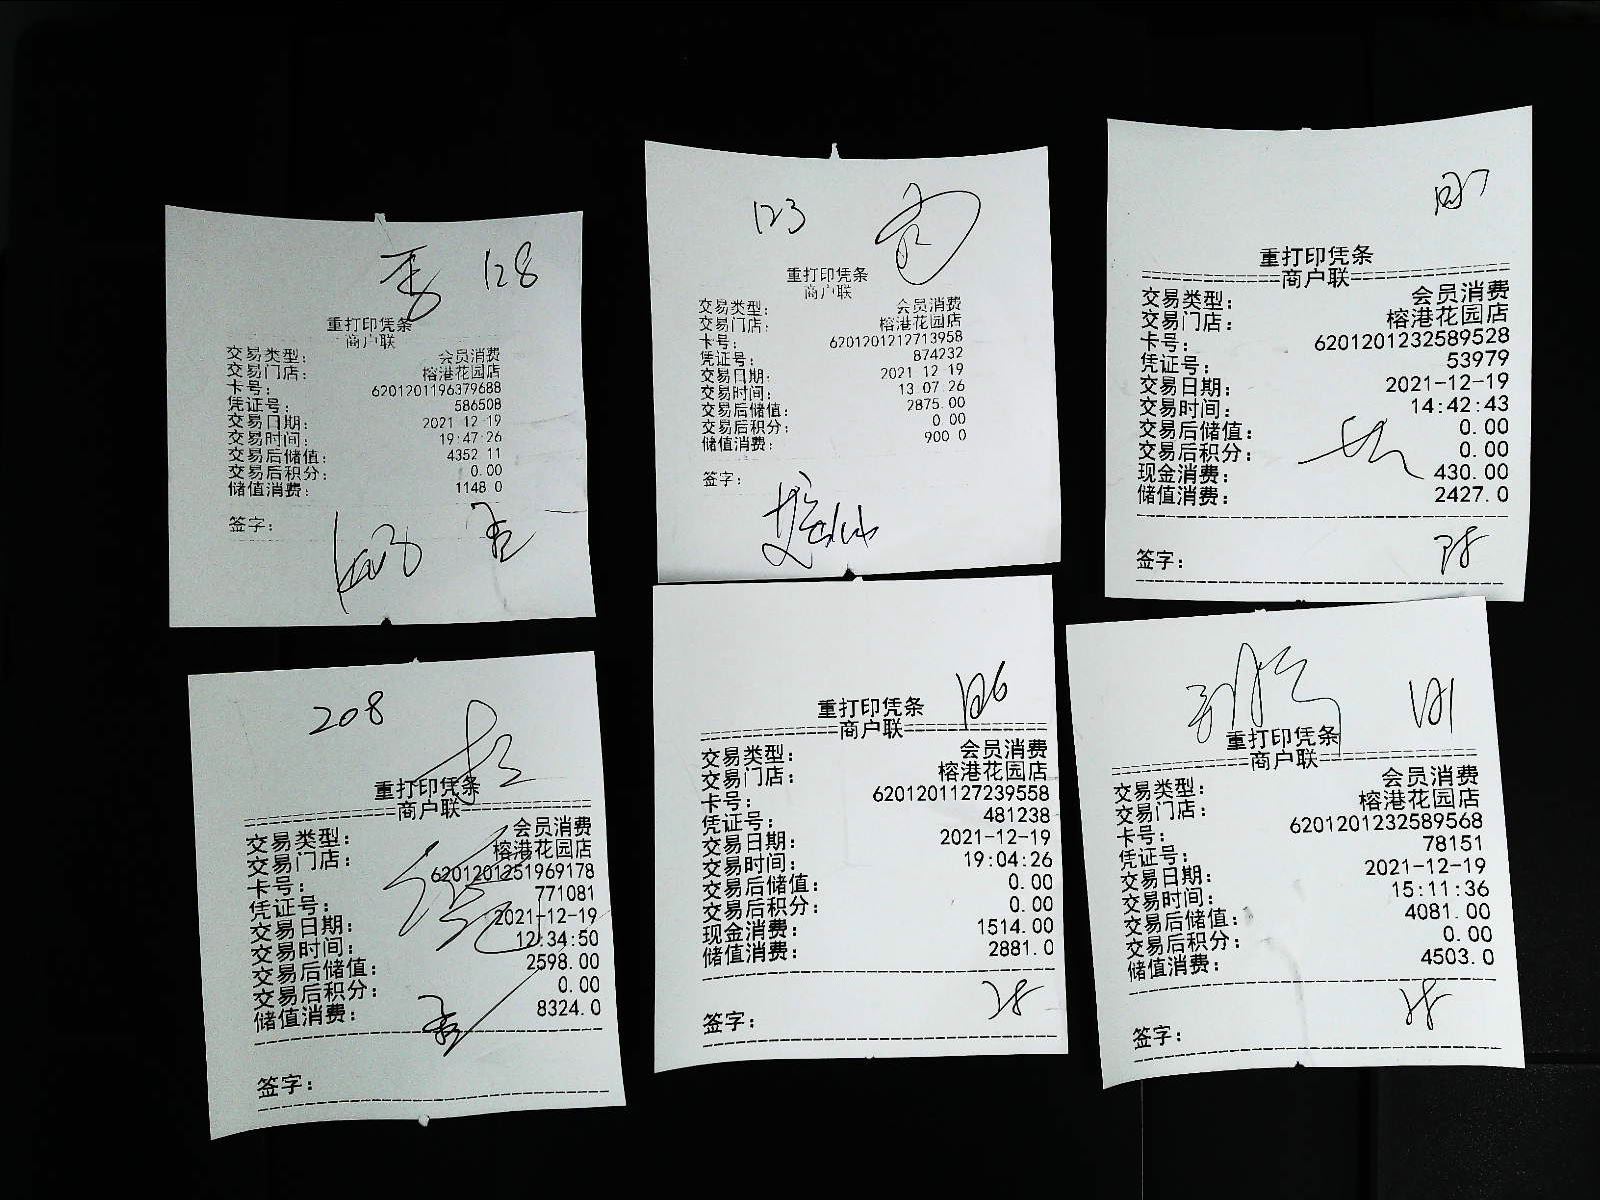 128
重打印凭条
商户联
交易类型： 会员消费
交易门店： 榕港花园店
卡号： 6201201196379688
凭证号： 586508
交易日期： 2021 12 19
交易时间： 19:47:26
交易后储值： 4352 11
交易后积分： 0.00
储值消费： 1148 0
签字：
123
重打印凭条
商户联
交易类型： 会员消费
交易门店： 榕港花园店
卡号： 6201201212713958
凭证号： 874232
交易日期： 2021 12 19
交易时间： 13 07 26
交易后储值： 2875.00
交易后积分： 0 00
储值消费： 900 0
签字：
重打印凭条
商户联
交易类型： 会员消费
交易门店： 榕港花园店
卡号： 6201201232589528
凭证号： 53979
交易日期： 2021-12-19
交易时间： 14:42:43
交易后储值： 0.00
交易后积分： 0.00
现金消费： 430.00
储值消费： 2427.0
签字：
208
重打印凭条
商户联
交易类型： 会员消费
交易门店： 榕港花园店
卡号： 6201201251969178
凭证号： 771081
交易日期： 2021-12-19
交易时间： 12:34:50
交易后储值： 2598.00
交易后积分： 0.00
储值消费： 8324.0
签字：
重打印凭条
商户联
交易类型： 会员消费
交易门店： 榕港花园店
卡号： 6201201127239558
凭证号： 481238
交易日期： 2021-12-19
交易时间： 19:04:26
交易后储值： 0.00
交易后积分： 0.00
现金消费： 1514.00
储值消费： 2881.0
签字：
重打印凭条
商户联
交易类型： 会员消费
交易门店： 榕港花园店
卡号： 6201201232589568
凭证号： 78151
交易日期： 2021-12-19
交易时间： 15:11:36
交易后储值： 4081.00
交易后积分： 0.00
储值消费： 4503.0
签字：